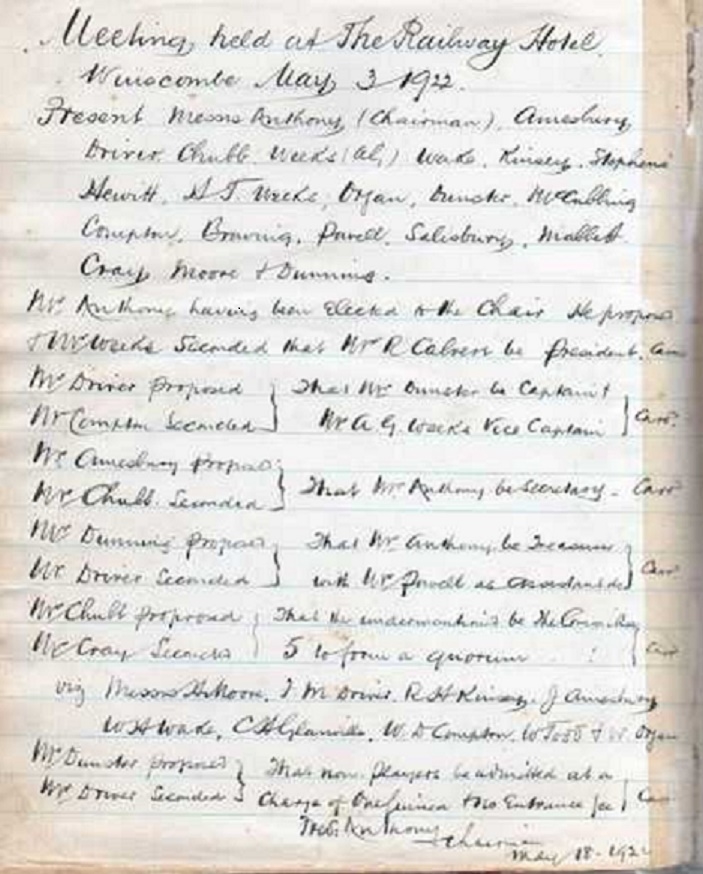 Meeting held at The Railway Hotel
Winscombe May 3 1922.
Present Messrs Anthony (Chairman), Amesbury
Driver. Chubb. Weeks (AG) Wade, Kinsey, Stephens
Hewitt, H T. Weeks, Organ, Dunster, McCubbing
Compton, Browning, Powell, Salisbury, Mallett
Cray, Moore & Dunning.
Mr Anthony having been elected to the Chair He proposed
& Mr Weeks Seconded that Mr R Calvert be President.
Mr Driver proposed } That Mr Dunster be Captain &
Mr Compton Seconded } Mr A. G. Weeks Vice Captain } Carr.
Mr Amesbury proposed
Mr Chubb. Seconded } That Mr Anthony be Secretary - Carr
Mr Dunning proposed } That Mr Anthony be Treasurer
Mr Driver Seconded } with Mr Powell as } Carr
Mr Chubb proposed } That the undermentioned be the Committee
Mr Cray Seconded } 5 to form a quorum } Carr
viz Messrs H Moore, F M Driver. R H Kinsey. J Amesbury
W H Wade, C H Glanville, W. D Compton. W Todd & W. Organ
Mr Dunster proposed } That non players be admitted at a
Mr Driver Seconded } Charge of One Guinea & no Entrance fee } Carr
Fredk Anthony
Chairman
May 18 - 1922